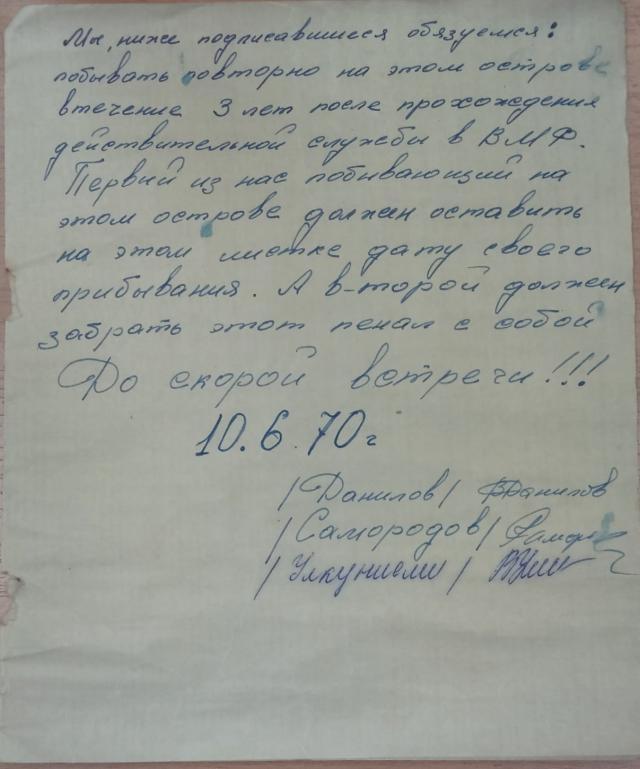 Мы, ниже подписавшиеся обязуемся:
побывать повторно на этом острове
втечение 3 лет после прохождения
действительной службы в ВМФ.
Первый из нас побывающий на
этом острове должен оставить
на этом листке дату своего
прибывания. А в-торой должен
забрать этот пенал с собой
До скорой встречи!!!
10.6.70г
/Данилов/ ВДанилов
/Самородов/
/Улкуниеми/